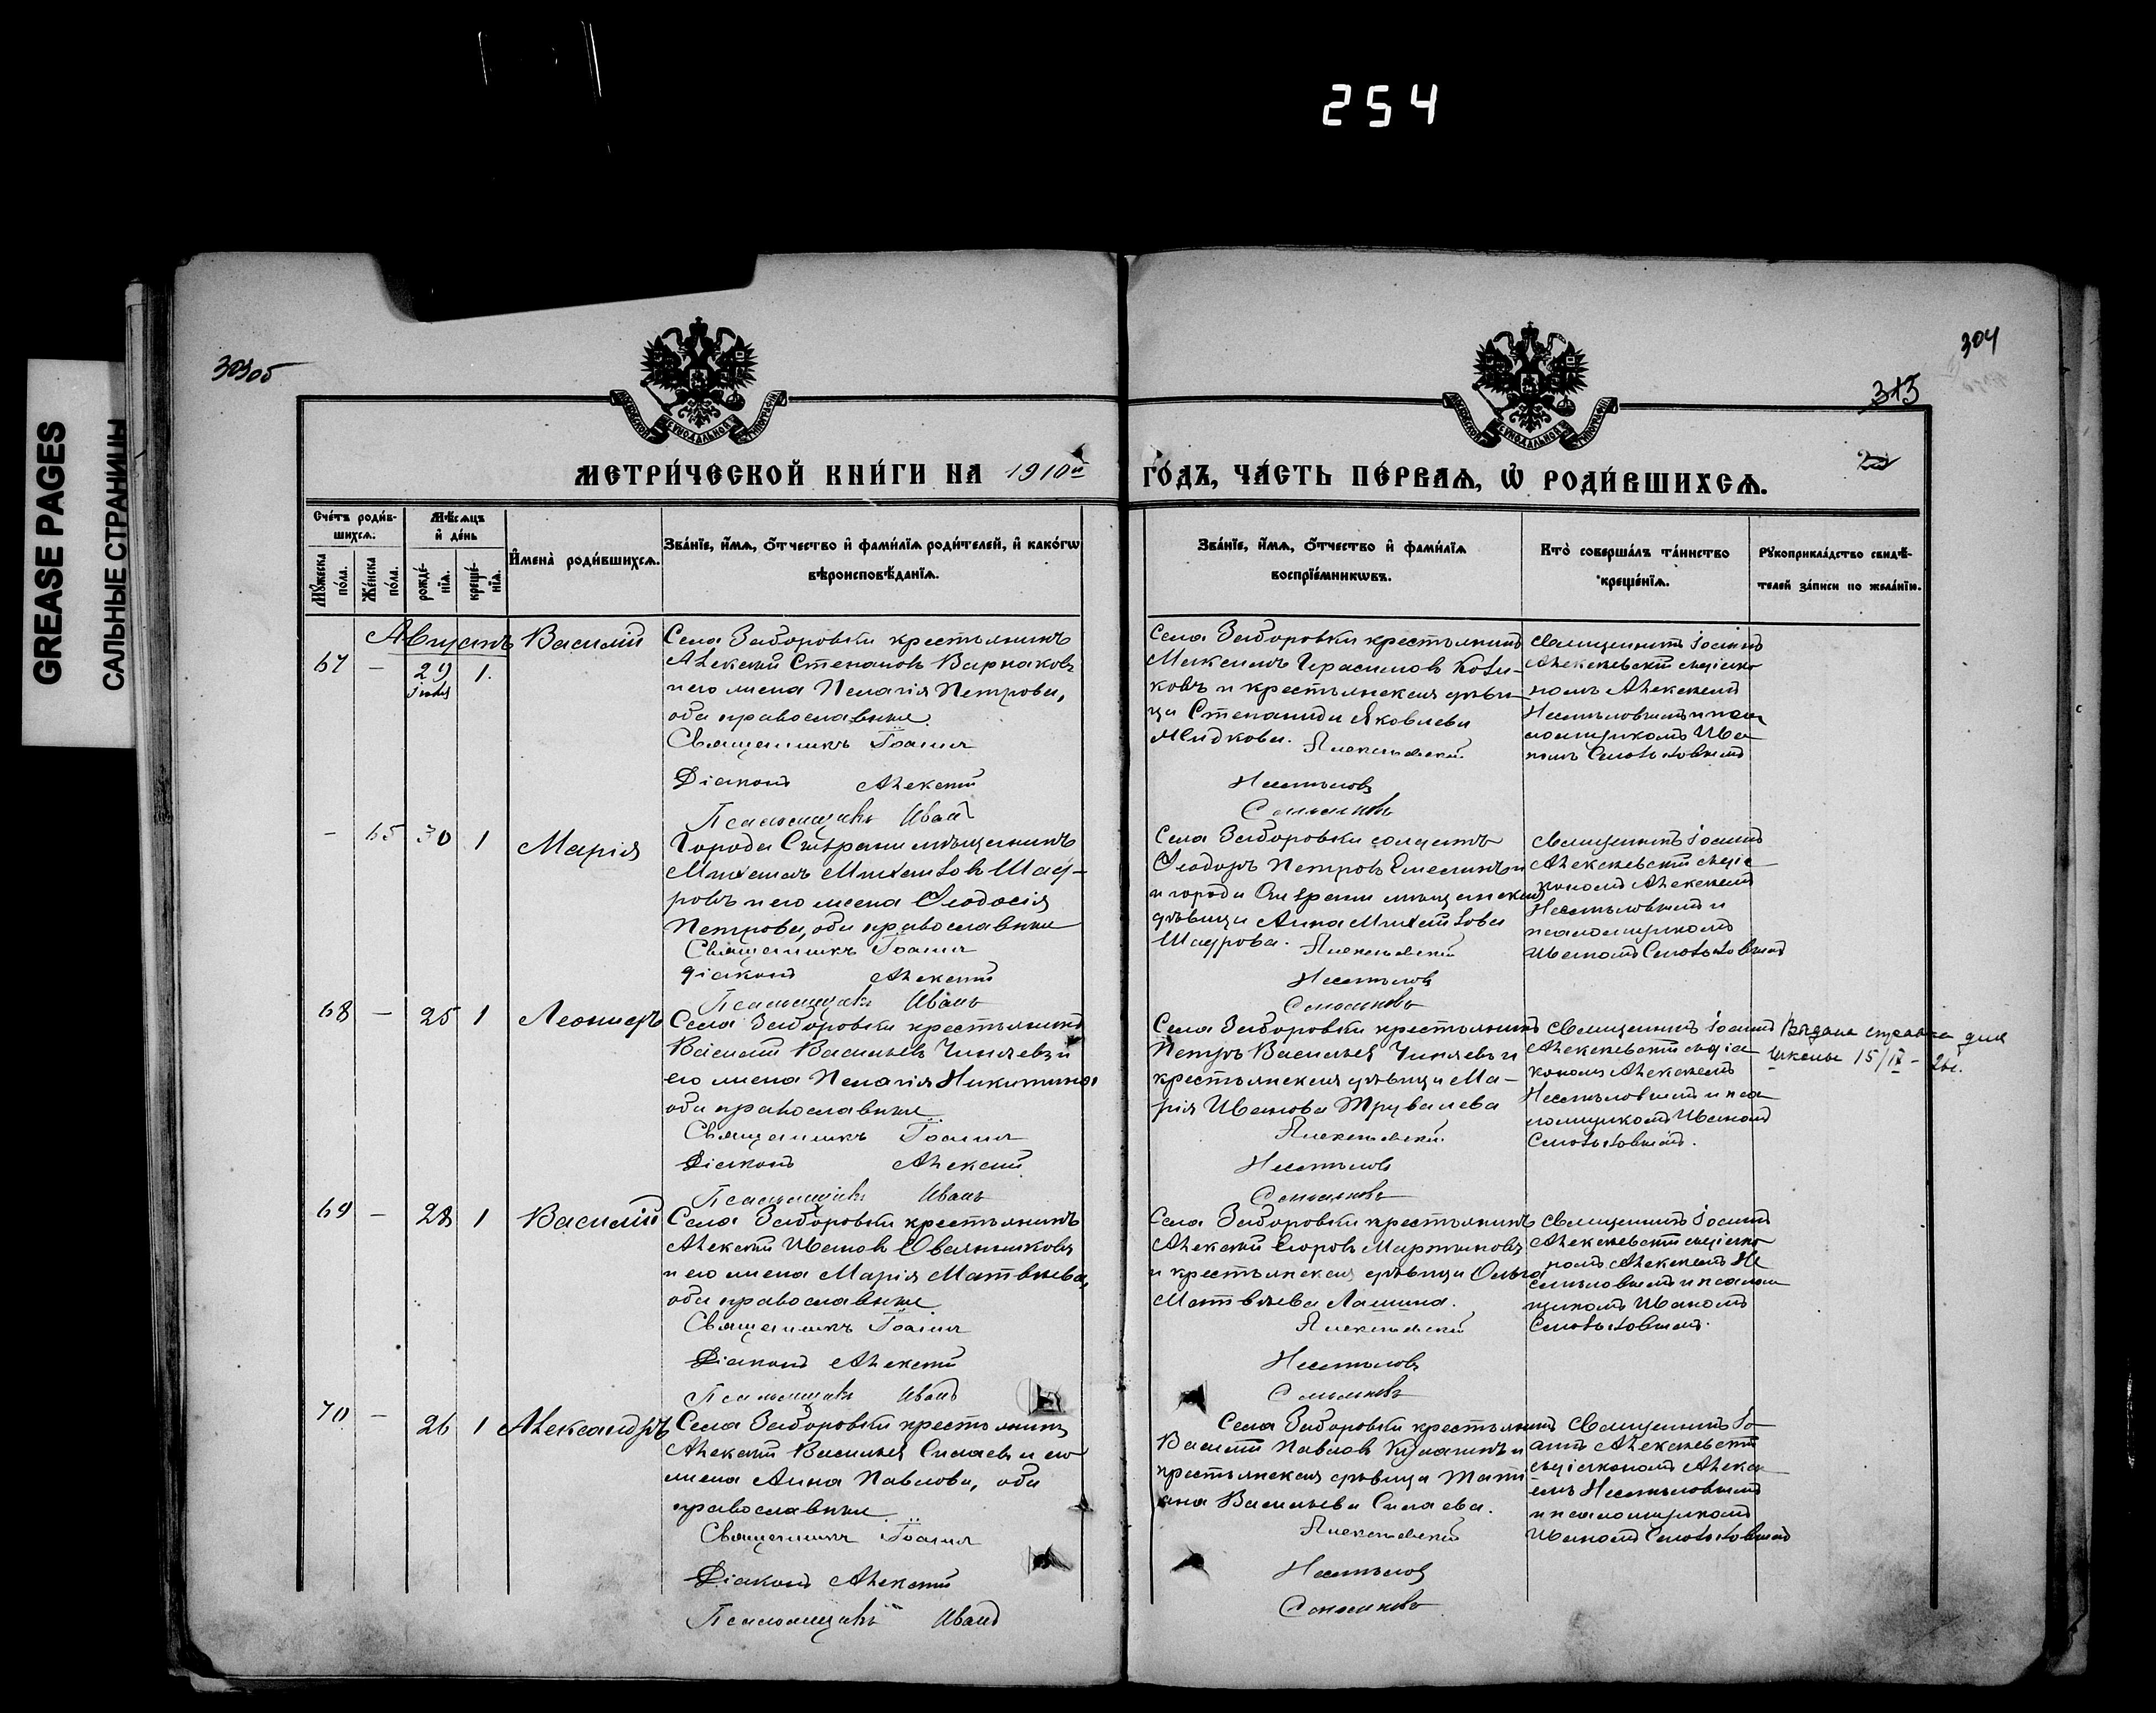 254
GREASE PAGES
САЛЬНЫЕ СТРАНИЦЫ
303об
304
313
МЕТРИ́ЧЕСКОЙ КНИ́ГИ НА 1910й ГО́ДЪ, ЧА́СТЬ ПЕ́РВАѦ, Ѿ РОДИ́ВШИХСѦ.
Сче́тъ роди́вшихсѧ.
Мꙋ́жеска по́ла.
Же́нска по́ла.
Мѣ́сѧцъ и҆ де́нь
рожде́нїѧ.
креще́нїѧ.
И҆мена̀ роди́вшихсѧ.
Зва́нїе, и҆́мѧ, ѻ҆́тчество и҆ фами́лїѧ роди́телей, и҆ како́гѡ
вѣроисповѣ́данїѧ.
Зва́нїе, и҆́мѧ, ѻ҆́тчество и҆ фами́лїѧ
воспрїе́мникѡвъ.
Кто̀ соверша́лъ та́инство
креще́нїѧ.
Рꙋкоприкла́дство свидѣ́-
телей за́писи по жела́нїю.
Августъ
67 – 29 Іюля 1. Василій
Села Заборовки крестьянинъ
Алексѣй Степановъ Варнаковъ
и его жена Пелагія Петрова,
оба православные.
Священникъ Іоаннъ
Діаконъ Алексѣй
Псаломщикъ Иванъ
Села Заборовки крестьянинъ
Максимъ Герасимовъ
ковъ и крестьянская дѣви-
ца Степанида Яковлева
Алексѣевскій
Несмѣловъ
Священникъ Іоаннъ
Алексѣевскій съ діако-
номъ Алексѣемъ
Несмѣловымъ и псал
ломщикомъ Ива-
номъ
– 65 30 1 Марія
Города Сызрани мѣщанинъ
Михаилъ Михайловъ Шад-
ровъ и его жена Ѳеодосія
Петрова, оба православные
Священникъ Іоаннъ
Діаконъ Алексѣй
Псаломщикъ Иванъ
Села Заборовки солдатъ
Ѳеодоръ Петровъ Емелинъ и
и города Сызрани мѣщанская
дѣвица Анна Михайлова
Шадрова.
Алексѣевскій
Несмѣловъ
Священникъ Іоаннъ
Алексѣевскій съ діа-
кономъ Алексѣемъ
Несмѣловымъ и
псаломщикомъ
Иваномъ
68 – 25 1 Леонидъ
Села Заборовки крестьянинъ
Василій Васильевъ Чиняевъ и
его жена Пелагія Никитина
оба православные
Священникъ Іоаннъ
Діаконъ Алексѣй
Псаломщикъ Иванъ
Села Заборовки крестьянинъ
Петръ Васильевъ Чиняевъ и
крестьянская дѣвица Ма-
рія Иванова Трувалева
Алексѣевскій
Несмѣловъ
Священникъ Іоаннъ
Алексѣевскій съ діа-
кономъ Алексѣемъ
Несмѣловымъ и пса-
ломщикомъ Иваномъ
Выдана справка для
школы 15/IX –
69 – 28 1 Василій
Села Заборовки крестьянинъ
Алексѣй Ивановъ Овчинниковъ
и его жена Марія Матвѣева,
оба православные
Священникъ Іоаннъ
Діаконъ Алексѣй
Псаломщикъ Иванъ
Села Заборовки крестьянинъ
Алексѣй Егоровъ Мартыновъ
и крестьянская дѣвица Ольга
Матвѣева Лашина.
Алексѣевскій
Несмѣловъ
Священникъ Іоаннъ
Алексѣевскій съ діако-
номъ Алексѣемъ Не
смѣловымъ и псалом
щикомъ Иваномъ
70 – 26 1 Александръ
Села Заборовки крестьянинъ
Алексѣй Васильевъ Силаевъ и его
жена Анна Павлова, оба
православные
Священникъ Іоаннъ
Діаконъ Алексѣй
Псаломщикъ Иванъ
Села Заборовки крестьянинъ
Василій Павловъ и
крестьянская дѣвица Тати
ана Васильева Силаева.
Алексѣевскій
Несмѣловъ
Священникъ Іо-
аннъ Алексѣевскій
съ діакономъ Алексѣ-
емъ Несмѣловымъ
и псаломщикомъ
Иваномъ